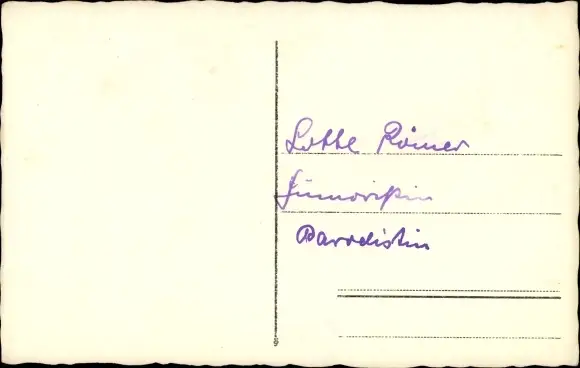 Lotte Römer
Humoristin
Parodistin